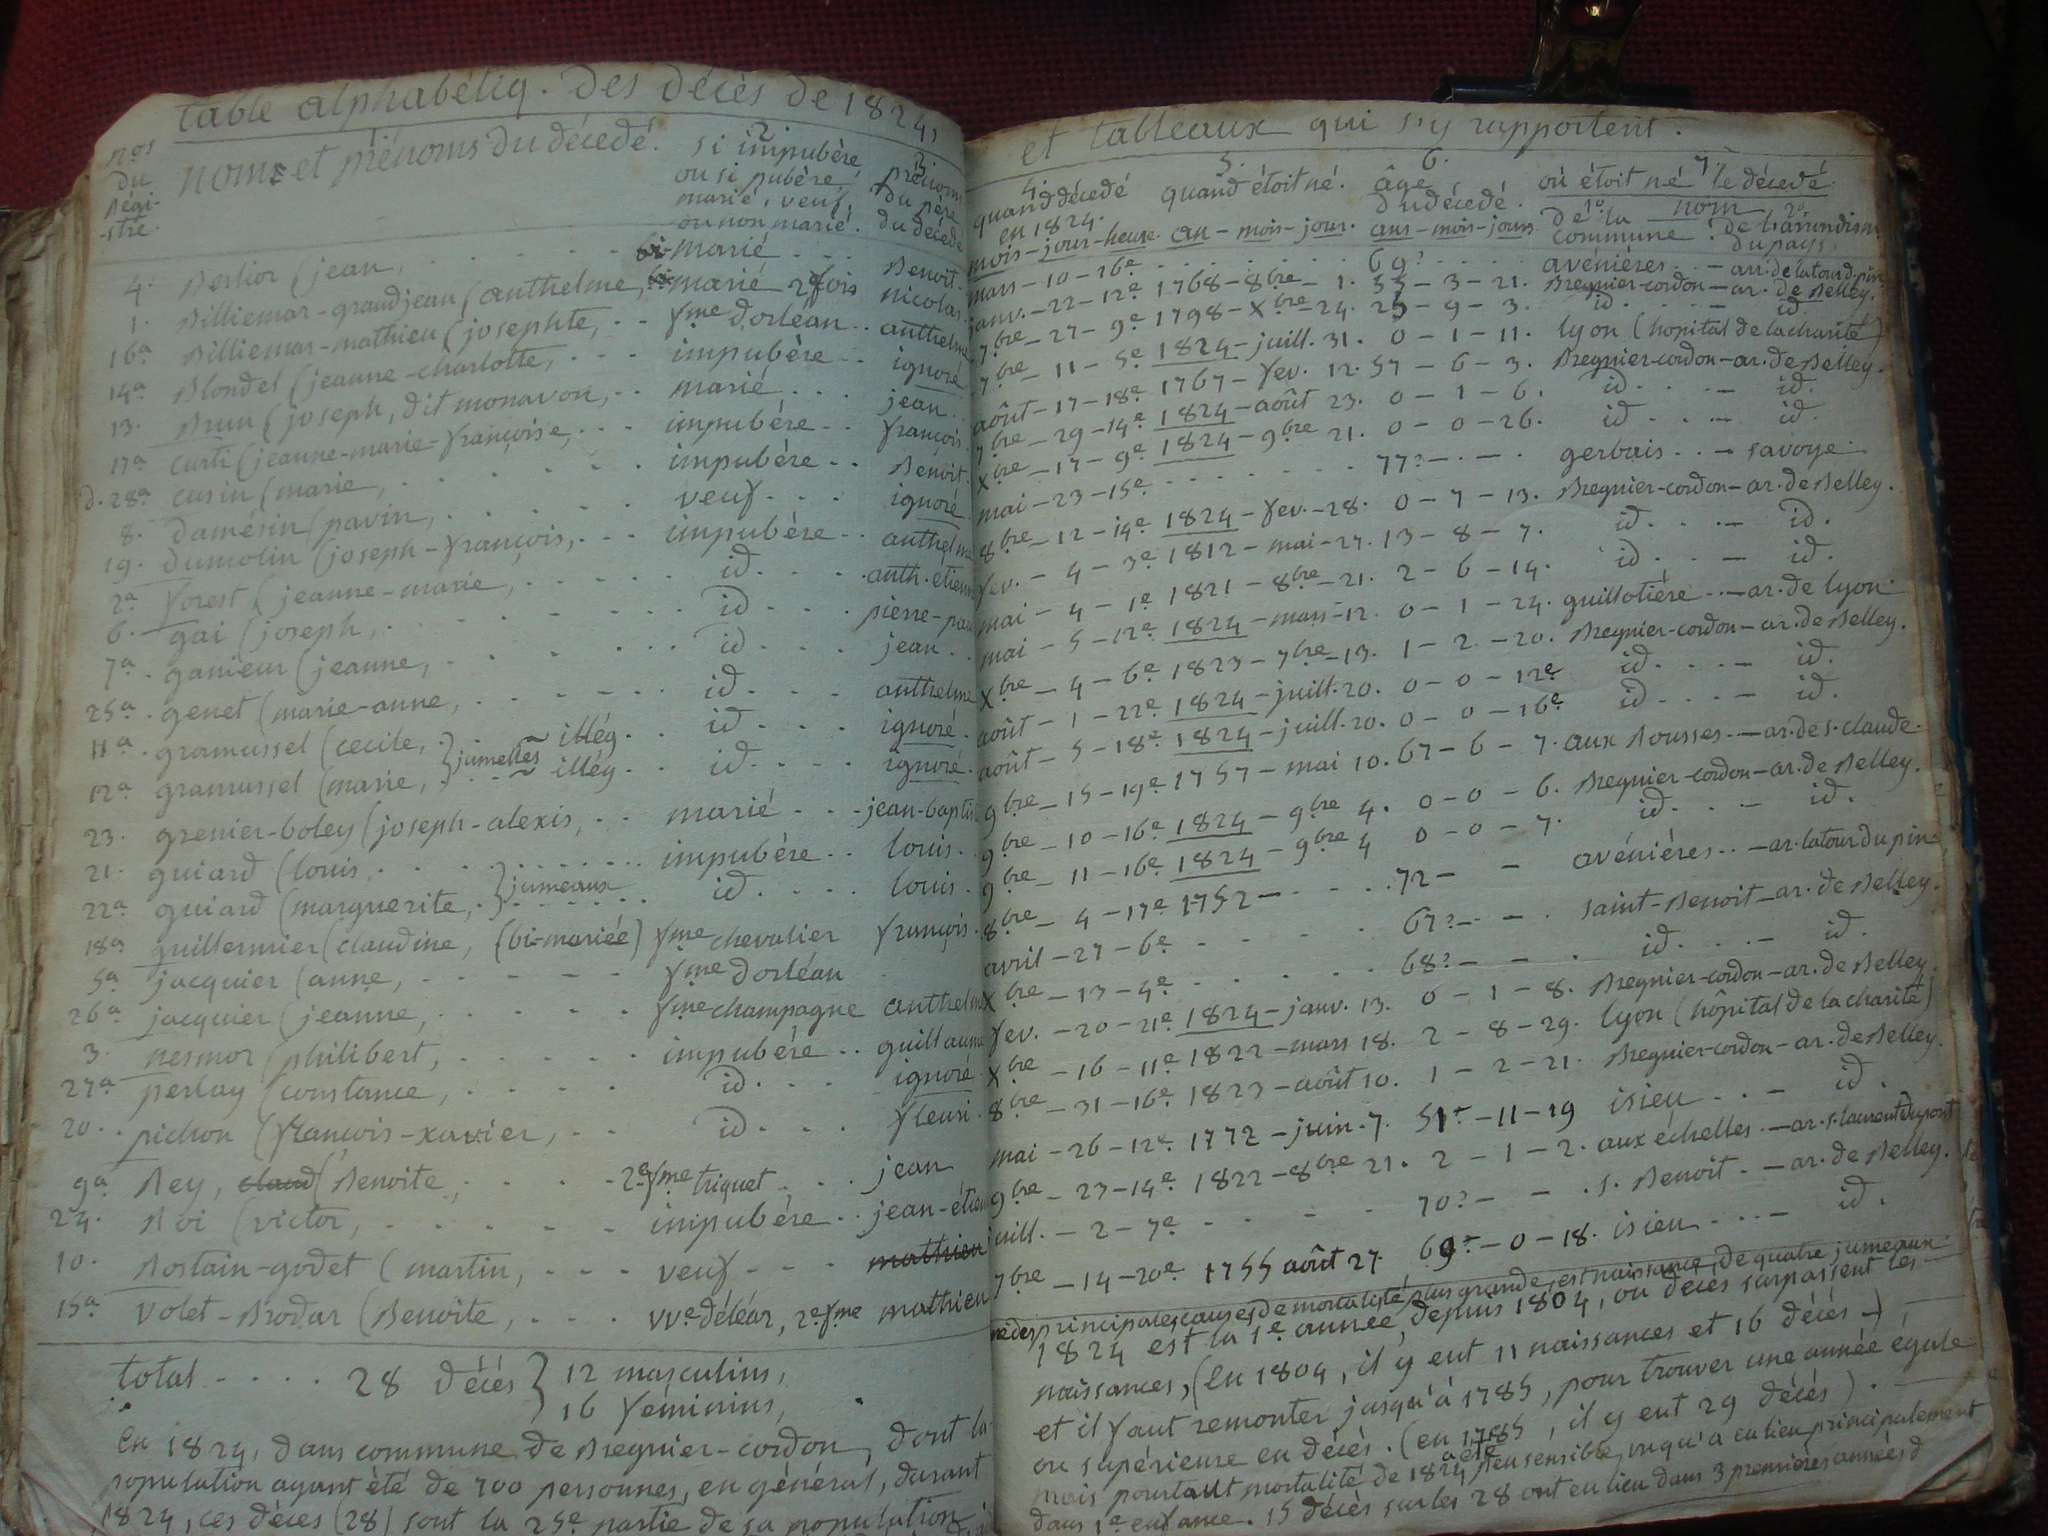 table alphabétiq. des décès de 1824,
nos du régi-stre.
noms et prénoms du décedé.
2. si impubère, ou si pubère, marié, veuf, ou non marié.
3. prénom du père du décedé
4. Berlior (jean, . . . . . bi-marié . . . Benoit.
1. Billiemar-grandjean (anthelme, bi-marié 2 fois nicolas.
16a Billiemar-mathieu (josephte, . . fme dorléan . . anthelme
14a Blondel (jeanne-charlotte, . . . impubère . . ignoré.
13. Brun (joseph, dit monavon, . . marié . . . jean . .
17a curti (jeanne-marie-françoise, . . . impubère . . françois.
d. 28a cusin (marie, . . . . . impubère . . Benoit.
8. damésin (pavin, . . . . . veuf . . . ignoré.
19. dumolin (joseph-françois, . . . impubère . . anthelme
2a forest (jeanne-marie, . . . . . id. . . . anth.etienn
6. gai (joseph, . . . . . id. . . . pierre-pau
7a. ganieur (jeanne, . . . . . id. . . . jean . .
25a. genet (marie-anne, . . . . . id. . . . anthelme
11a. gramussel (cecile, } jumelles ~ illég . . id. . . . ignoré.
12a gramussel (marie, } ~ illég . . id. . . . ignoré.
23. grenier-boley (joseph-alexis, . . marié . . . jean-baptis
21. guiard (louis, . . . . . impubère . . louis . .
22a guiard (marguerite, } jumeaux . . . id. . . . louis .
18a guillermier (claudine, (bi-mariée) fme chevalier françois.
5a jacquier (anne, . . . . . fme dorléan
26a jacquier (jeanne, . . . . . fme champagne anthelme
3. nesmor (philibert, . . . . . impubère . . guillaume
27a perlay (constance, . . . . id. . . . ignoré.
20. . pichon (françois-xavier, . . id. . . . fleuri .
9a Rey, claud (Benoite, . . . . 2e fme triquet . . . jean
24. Roi (victor, . . . . . impubère . . jean-étien
10. Rostain-godet (martin, . . . veuf . . . mathieu
15a volet-Brodar (Benoite, . . . vve déléar, 2e fme mathieu
total . . . . 28 décès } 12 masculins,
16 féminins,
en 1824, dans commune de Bregnier-cordon, dont la
population ayant été de 700 personnes, en général, durant
1824, ces décès (28) sont la 25e partie de sa population
et tableaux qui s'y rapportent.
4. quand décedé en 1824. mois-jour-heure.
5. quand étoit né. an-mois-jour.
6. âge du décedé. ans-mois-jours
7. où étoit né le décedé
nom
1o de la commune. 2o de l'arrondism. du pays.
mars-10-16e . . . . . 69? . . . avenières . . - ar. de latour d. pin
janv.-22-12e 1768-8bre-1. 55-3-21. Bregnier-cordon-ar. de Belley.
7bre-27-9e 1798-Xbre-24. 25-9-3. id. . . . - id.
7bre-11-5e 1824-juill. 31. 0-1-11. lyon (hopital de la charité)
août-17-18e 1767-fev. 12. 57-6-3. Bregnier-cordon-ar. de Belley.
7bre-29-14e 1824-août 23. 0-1-6. id. . . . - id.
Xbre-17-9e 1824-9bre 21. 0-0-26. id. . . . - id.
mai-23-15e . . . . . 77?-.-. gerbais . . - savoye.
8bre-12-14e 1824-fev.-28. 0-7-13. Bregnier-cordon-ar. de Belley.
fev.-4-3e 1812-mai-27. 13-8-7. id. . . . - id.
mai-4-1e 1821-8bre-21. 2-6-14. id. . . . - id.
mai-5-12e 1824-mars-12. 0-1-24. guillotière . . - ar. de lyon.
Xbre-4-6e 1823-7bre-13. 1-2-20. Bregnier-cordon-ar. de Belley.
août-1-22e 1824-juill. 20. 0-0-12e id. . . . - id.
août-5-18e 1824-juill. 20. 0-0-16e id. . . . - id.
9bre-15-19e 1757-mai 10. 67-6-7. aux Rousses.-ar. de s. claude.
9bre-10-16e 1824-9bre 4. 0-0-6. Bregnier-cordon-ar. de Belley.
9bre-11-16e 1824-9bre 4 0-0-7. id. . . - id.
8bre-4-17e 1752-. . . . 72- - avénières . . - ar. latour du pin
avril-27-6e . . . . . 67?- . - . saint-Benoit-ar. de Belley.
Xbre-13-4e . . . . . 68?- - . id. . . . - id.
fev.-20-21e 1824-janv. 13. 0-1-8. Bregnier-cordon-ar. de Belley.
Xbre-16-11e 1822-mars 18. 2-8-29. lyon (hôpital de la charité)
8bre-31-16e 1823-août 10. 1-2-21. Bregnier-cordon-ar. de Belley.
mai-26-12e 1772-juin.7. 51-11-19 isieu . . . - id.
9bre-23-14e 1822-8bre 21. 2-1-2. aux échelles.-ar. s. laurent du pont
juill.-2-7e . . . . . 70?- - . s. Benoit.-ar. de Belley.
7bre-14-20e 1755 août 27. 69-0-18. isieu . . . - id.
principales causes de mortalité plus grande, est naissance de quatre jumeaux.
1824 est la 1e année, depuis 1804, où décès surpassent les
naissances, (en 1804, il y eut 11 naissances et 16 décès -)
et il faut remonter jusqu'à 1785, pour trouver une année égale
ou supérieure en décès. (en 1785, il y eut 29 décès).
mais pourtant mortalité de 1824 a été peu sensible, vu qu'a eu lieu principalement
dans 1e enfance. 15 décès sur les 28 ont eu lieu dans 3 premières années d